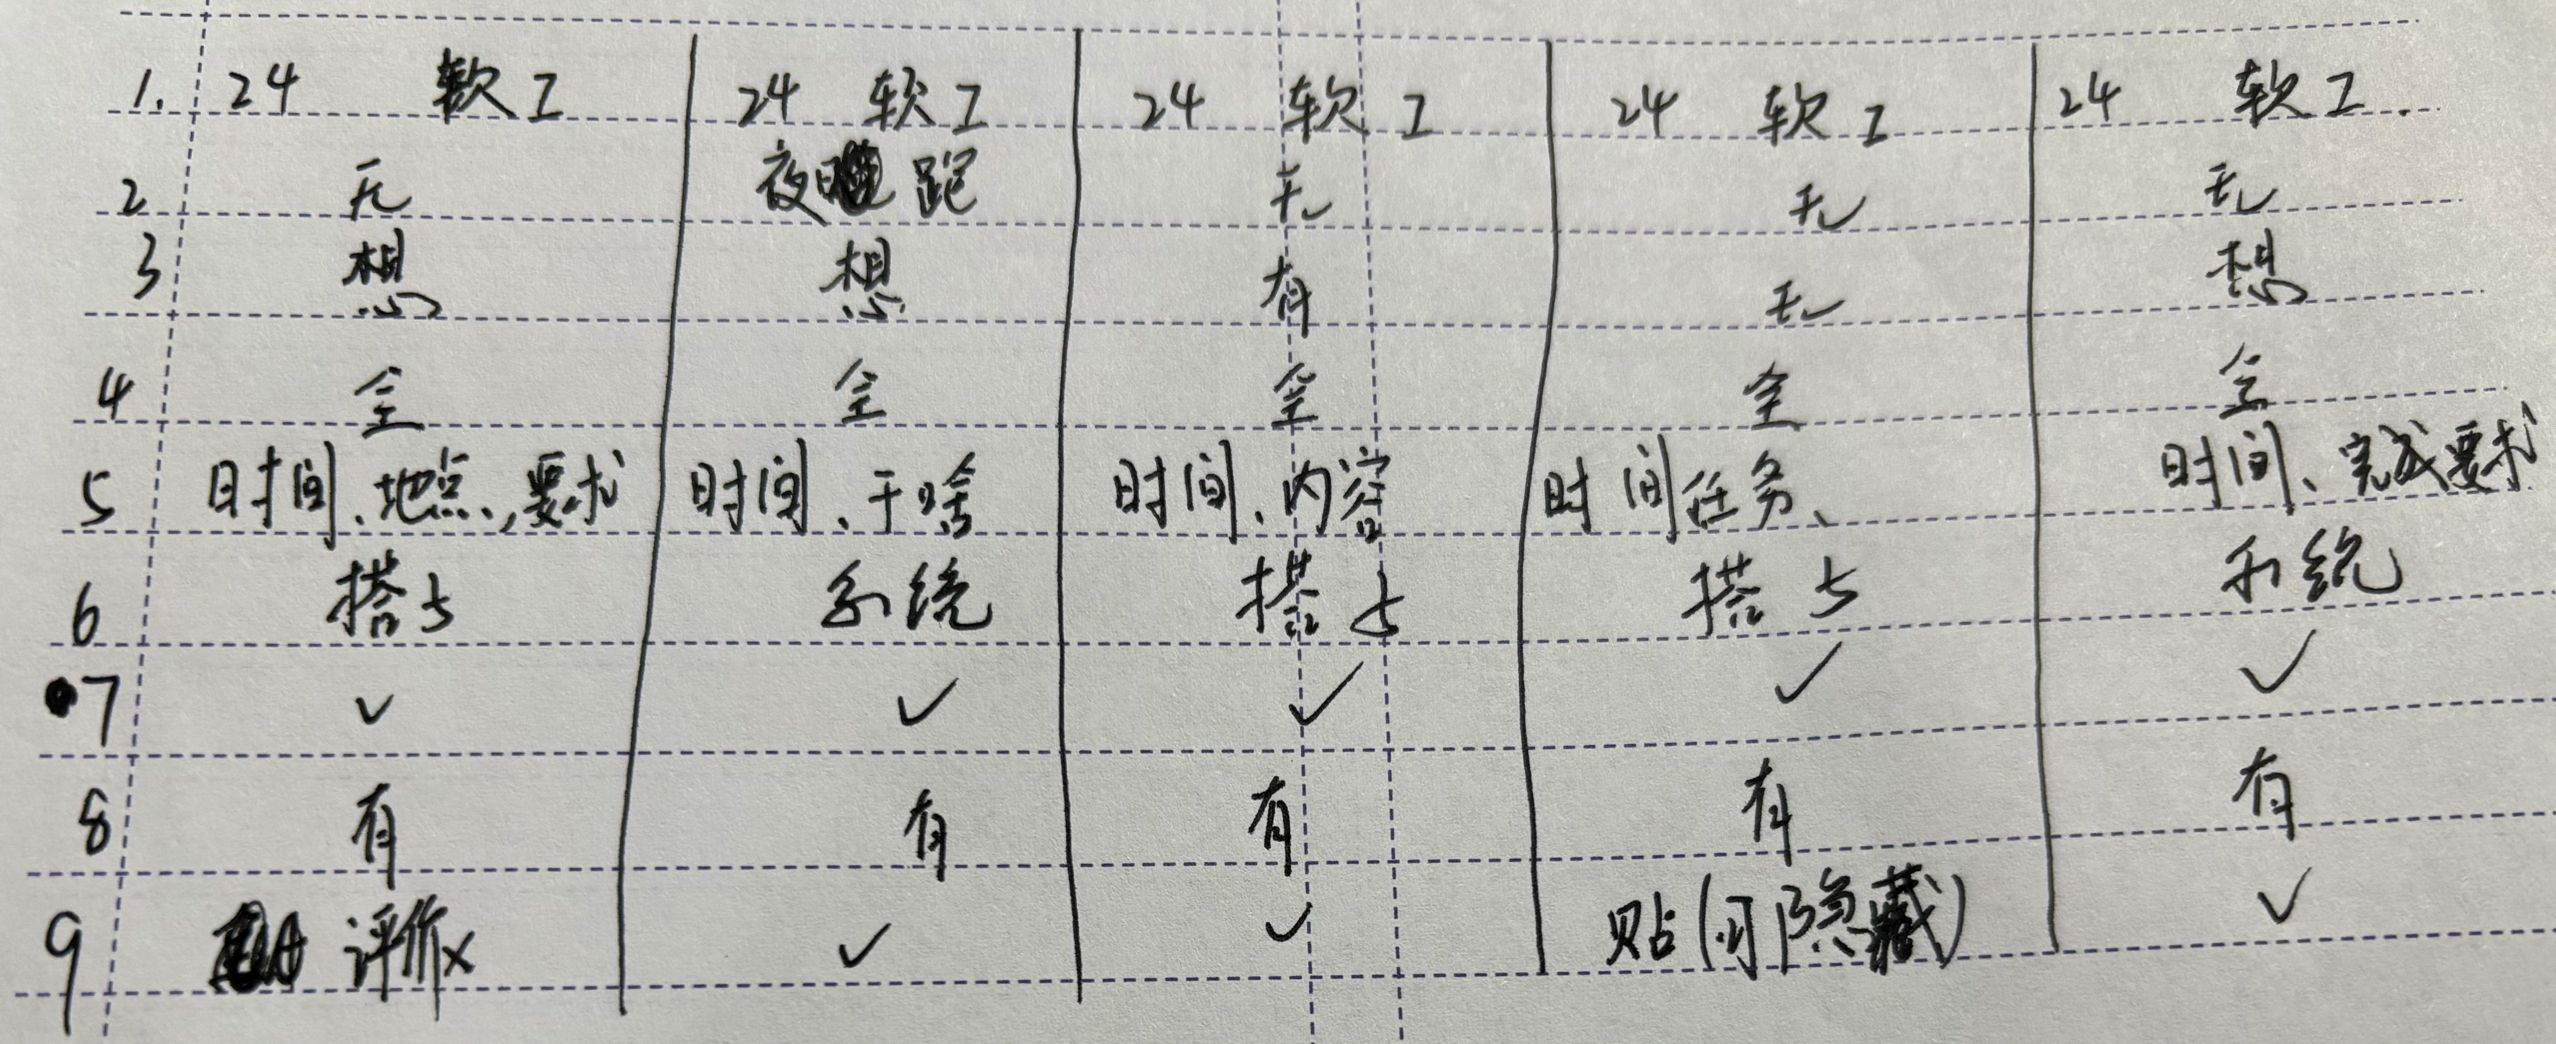 1. 24 软工 24 软工 24 软工 24 软工 24 软工
2 无 夜跑 无 无 无
3 想 想 有 无 想
4 全 全 全 全 全
5 时间、地点、要求 时间、干啥 时间、内容 时间任务、 时间、完成要求
6 搭子 系统 搭子 搭子 系统
7 ✓ ✓ ✓ ✓ ✓
8 有 有 有 有 有
9 评价x ✓ ✓ 贴(可隐藏) ✓